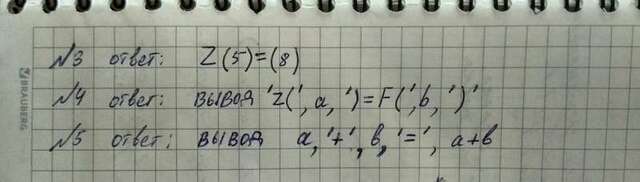 №3 ответ: Z(5)=(8)
№4 ответ: вывод 'Z(', a, ')=F(', b, ')'
№5 ответ: вывод a, '+', b, '=', a+b
BRAUBERG